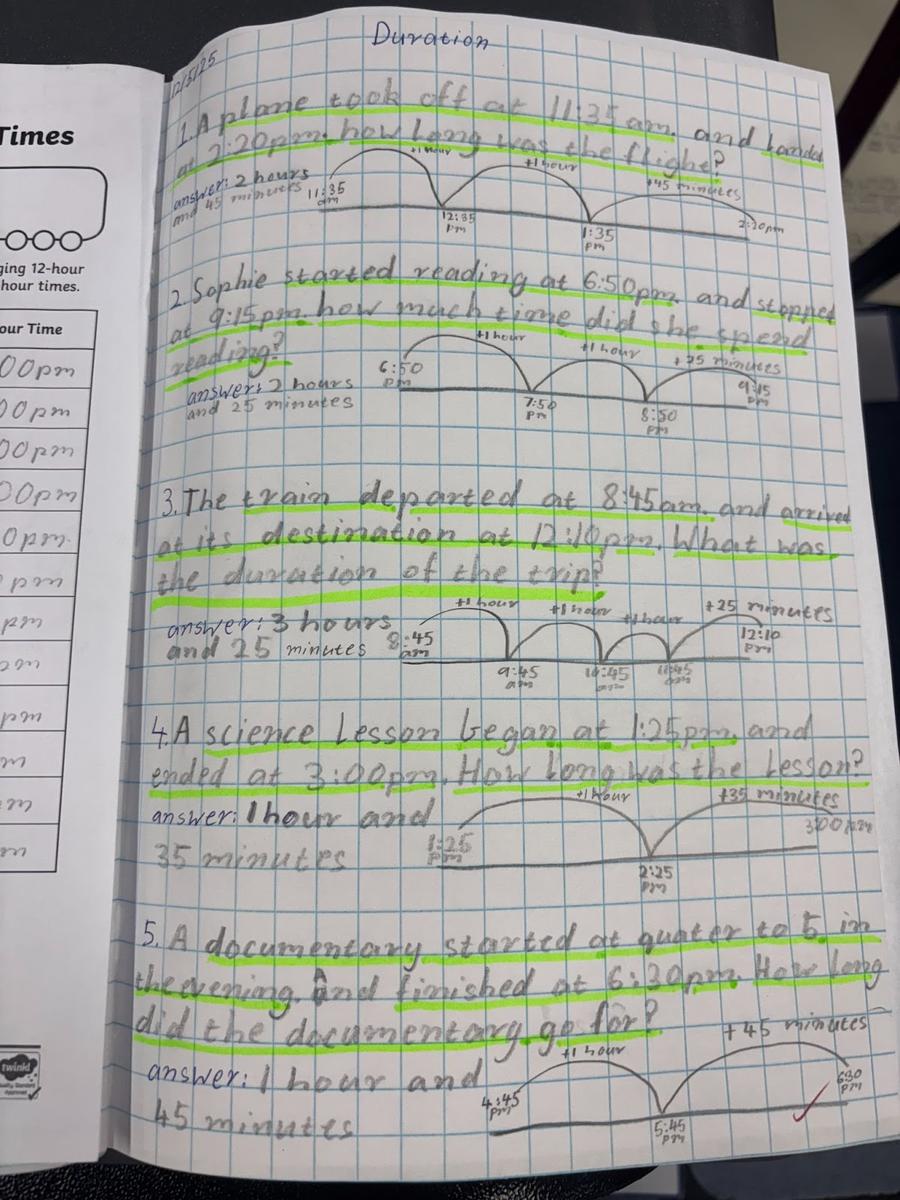 Duration
12/5/25
1.A plane took off at 11:35am. and landed
at 2:20pm. how long was the flight?
answer: 2 hours
and 45 minutes
11:35
am
+1 hour
12:35
pm
+1 hour
1:35
pm
+45 minutes
2:20pm
2.Sophie started reading at 6:50pm. and stopped
at 9:15pm. how much time did she spend
reading?
answer: 2 hours
and 25 minutes
6:50
pm
+1 hour
7:50
pm
+1 hour
8:50
pm
+25 minutes
9:15
pm
3.The train departed at 8:45am. and arrived
at its destination at 12:10pm. What was
the duration of the trip?
answer: 3 hours
and 25 minutes
8:45
am
+1 hour
9:45
am
+1 hour
10:45
am
+1 hour
11:45
+25 minutes
12:10
pm
4.A science Lesson began at 1:25pm. and
ended at 3:00pm. How long was the Lesson?
answer: 1 hour and
35 minutes
1:25
pm
+1 hour
2:25
pm
+35 minutes
3:00pm
5. A documentary started at quater to 5 in
the evening. And finished at 6:30pm. How long
did the documentary go for?
answer: 1 hour and
45 minutes
4:45
pm
+1 hour
5:45
pm
+45 minutes
6:30
pm
Times
ging 12-hour
hour times.
our Time
00pm
00pm
00pm
00pm
0pm.
pm
pm
pm
twinkl